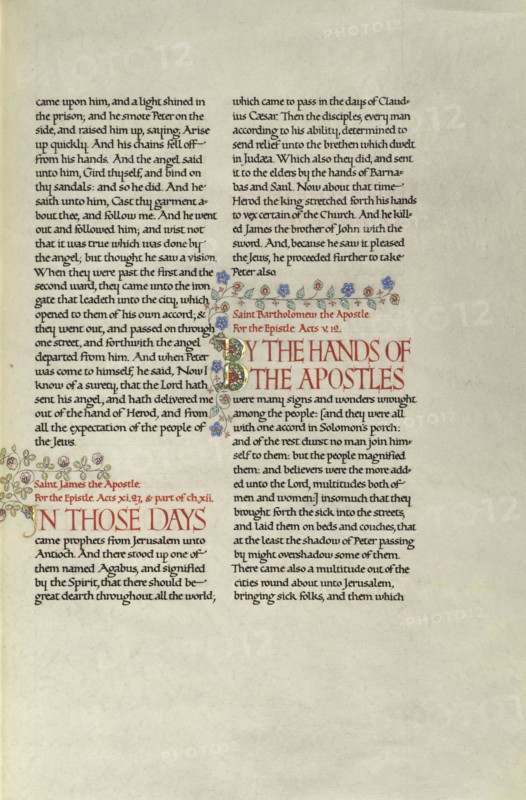 came upon him, and a light shined in
the prison; and he smote Peter on the
side, and raised him up, saying, Arise
up quickly. And his chains fell off
from his hands. And the angel said
unto him, Gird thyself, and bind on
thy sandals: and so he did. And he
saith unto him, Cast thy garment a-
bout thee, and follow me. And he went
out and followed him; and wist not
that it was true which was done by
the angel; but thought he saw a vision.
When they were past the first and the
second ward, they came unto the iron
gate that leadeth unto the city, which
opened to them of his own accord; &
they went out, and passed on through
one street, and forthwith the angel
departed from him. And when Peter
was come to himself, he said, Now I
know of a surety, that the Lord hath
sent his angel, and hath delivered me
out of the hand of Herod, and from
all the expectation of the people of
the Jews.
Saint James the Apostle.
For the Epistle. Acts xi.27, & part of ch.xii.
IN THOSE DAYS
came prophets from Jerusalem unto
Antioch. And there stood up one of
them named Agabus, and signified
by the Spirit, that there should be
great dearth throughout all the world;
which came to pass in the days of Claud-
ius Cæsar. Then the disciples, every man
according to his ability, determined to
send relief unto the brethren which dwelt
in Judæa. Which also they did, and sent
it to the elders by the hands of Barna-
bas and Saul. Now about that time
Herod the king stretched forth his hands
to vex certain of the Church. And he kill-
ed James the brother of John with the
sword. And, because he saw it pleased
the Jews, he proceeded further to take
Peter also.
Saint Bartholomew the Apostle.
For the Epistle. Acts v. 12.
BY THE HANDS OF
THE APOSTLES
were many signs and wonders wrought
among the people: [and they were all
with one accord in Solomon's porch:
and of the rest durst no man join him-
self to them: but the people magnified
them: and believers were the more add-
ed unto the Lord, multitudes both of
men and women:] insomuch that they
brought forth the sick into the streets,
and laid them on beds and couches, that
at the least the shadow of Peter passing
by might overshadow some of them.
There came also a multitude out of the
cities round about unto Jerusalem,
bringing sick folks, and them which
PHOTO12